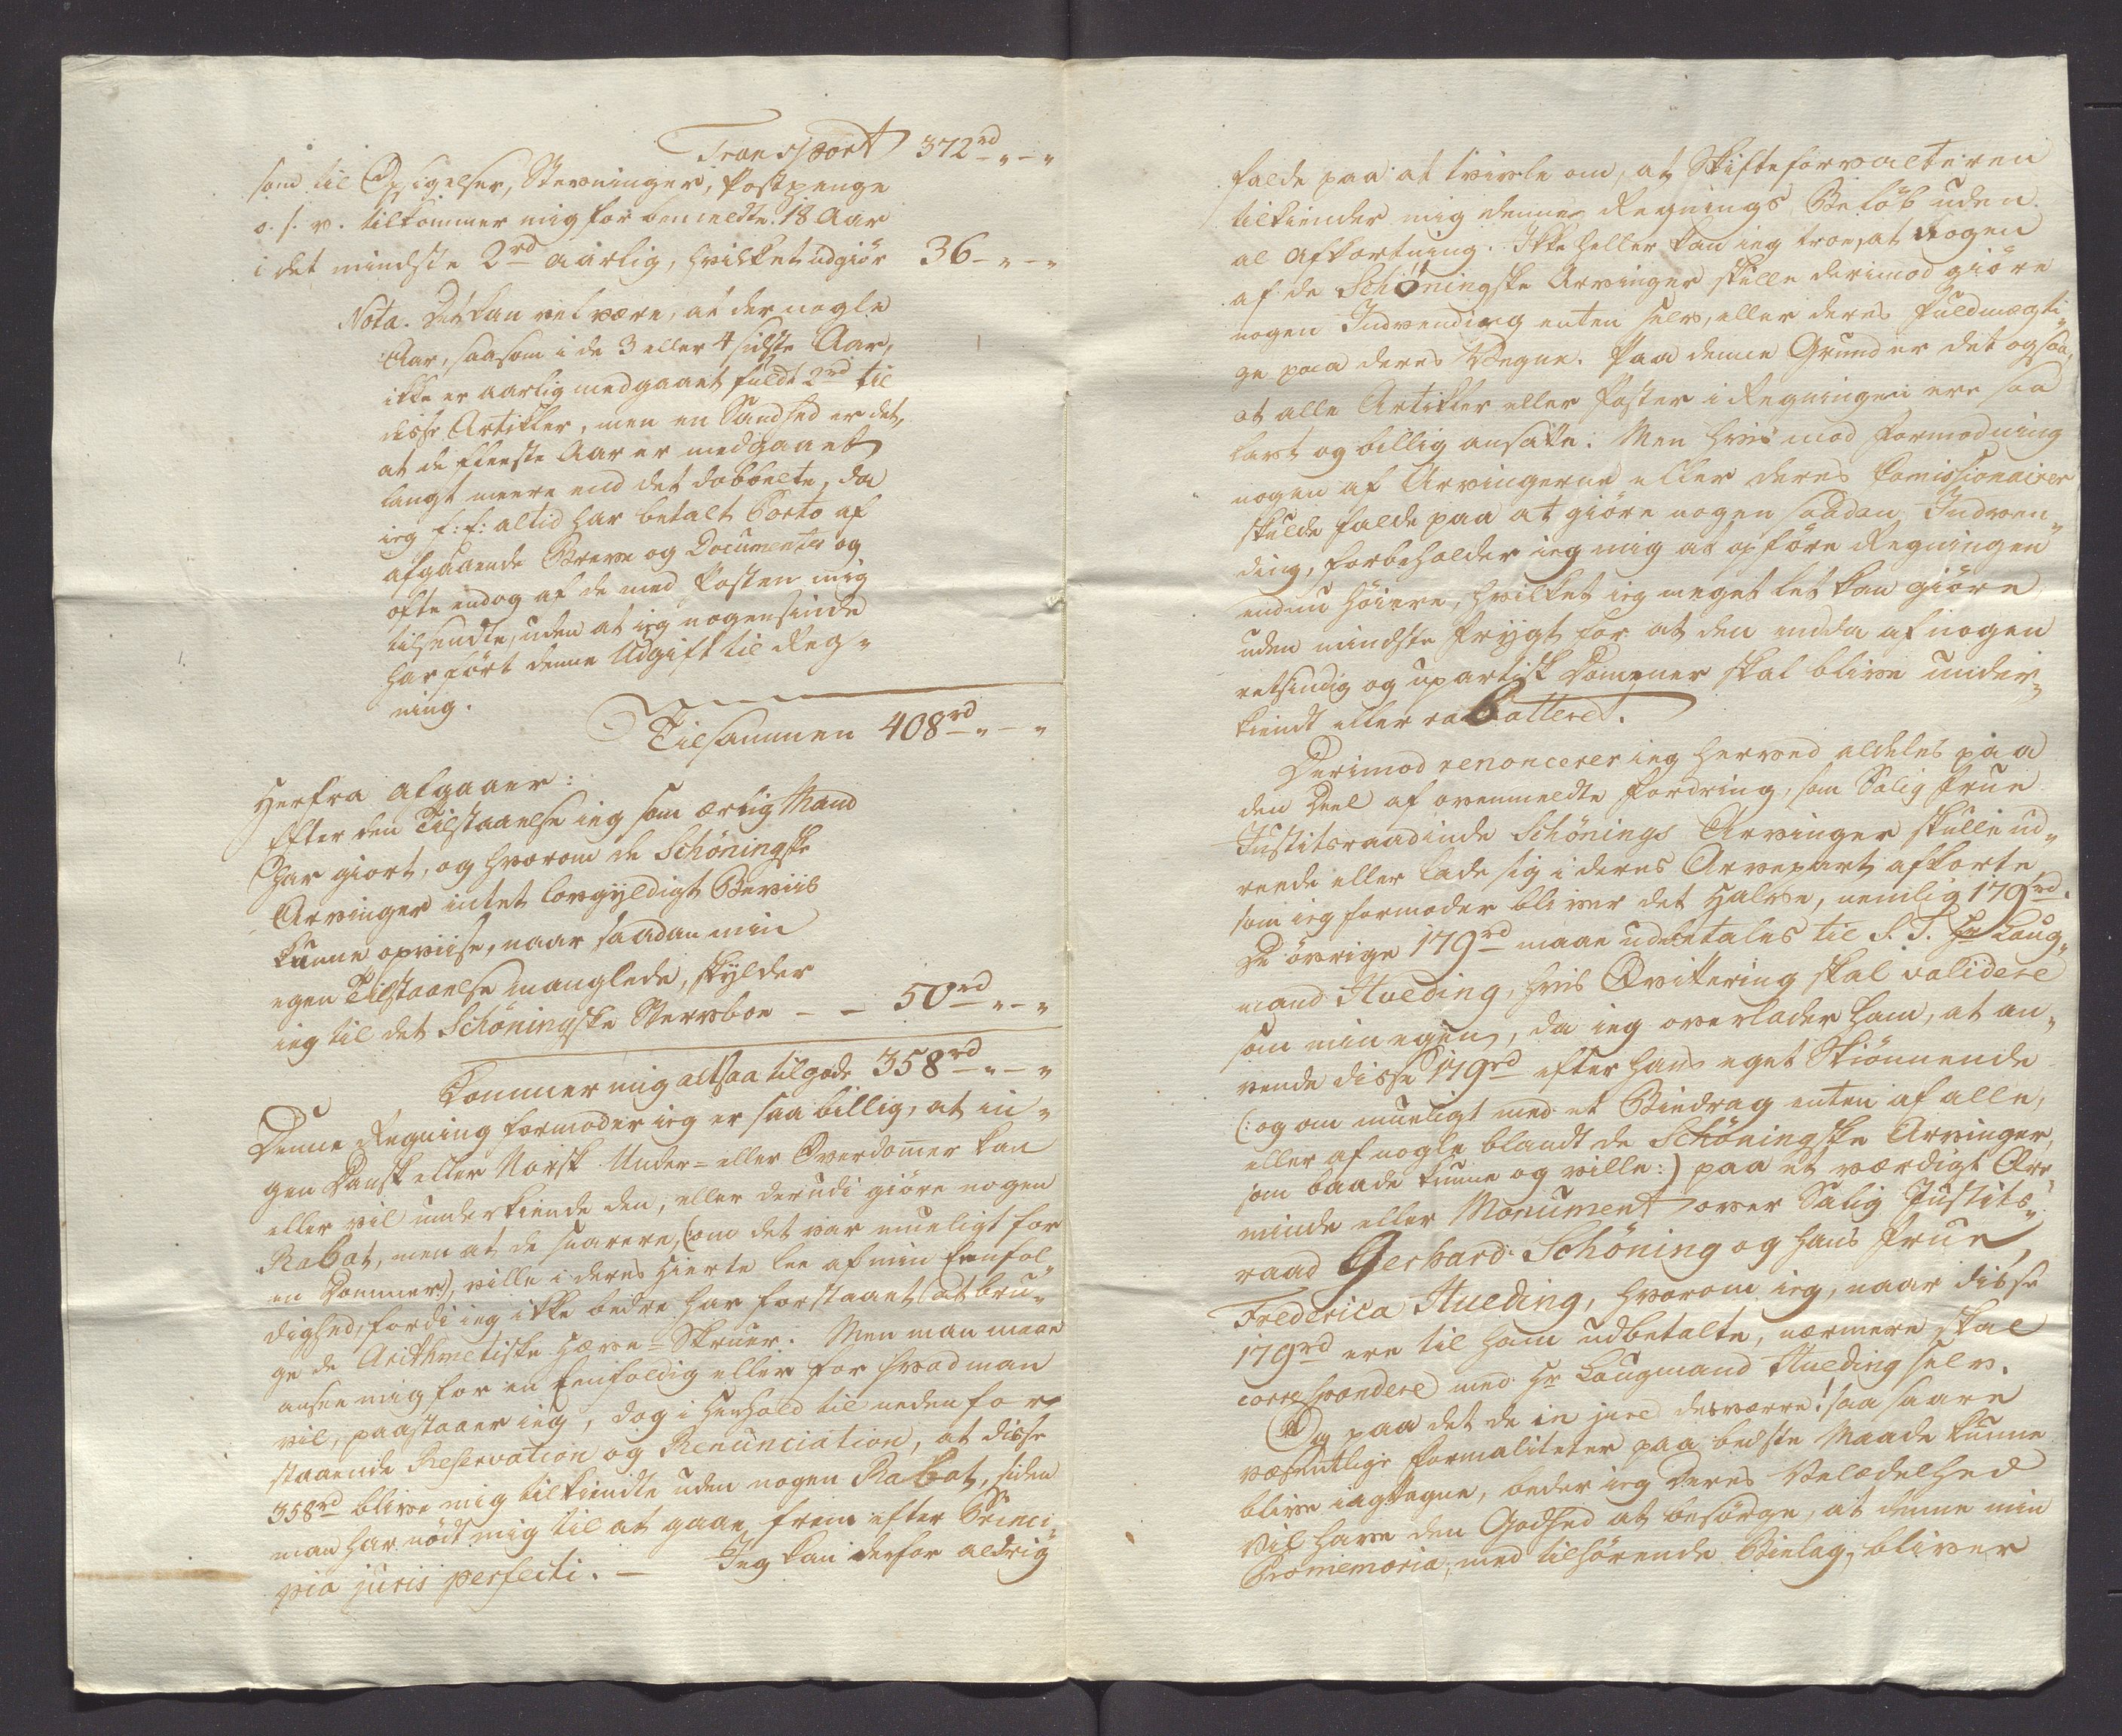 Transport 372rd „ - „
som til Opsigelser, Stevninger, Postpenge
o. s. v. tilkommer mig for bemeldte 18 Aar
i det mindste 2rd aarlig, hvilket udgiör 36 - „ - „
Nota. Det kan vel være, at der nogle
Aar, saasom i de 3 eller 4 sidste Aar,
ikke er aarlig medgaaet fuldt 2rd til
disse Artikler, men en Sandhed er det,
at de fleeste Aar er medgaaet
langt meere end det dobbelte, da
ieg f: E: altid har betalt Porto af
afgaaende Breve og Documenter og
ofte endog af de med Posten mig
tilsendte, uden at ieg nogensinde
har fört denne Udgift til Reg„
ning.
Tilsammen 408rd „ - „
Herfra afgaaer:
Efter den Tilstaaelse ieg som ærlig Mand
har giort, og hvorom de Schöningske
Arvinger intet lovgyldigt Beviis
kunne opviise, naar saadan min
egen Tilstaaelse manglede, skylder
ieg til det Schöningske Stervboe - - 50rd „ - „
Kommer mig altsaa tilgode 358rd „ - „
Denne Regning formoder ieg er saa billig, at in„
gen Dansk eller Norsk Under= eller Overdomer kan
eller vil underkiende den, eller derudi giöre nogen
Rabat, men at de snarere, (:om det var mueligt for
en Dommer:), ville i deres Hierte lee af min Eenfol„
dighed, fordi ieg ikke bedre har forstaaet at bru„
ge de Arithmetiske Hæve=Skruer. Men man maae
ansee mig for en Eenfoldig eller for hvad man
vil, paastaaer ieg, dog i Henhold til nedenfor
staaende Reservation og Renunciation, at disse
358rd blive mig tilkiendte uden nogen Rabat, siden
man har nödt mig til at gaae frem efter Princi„
pia juris perfecti. — Jeg kan derfor aldrig
falde paa at tvivle om, at Skifteforvalteren
tilkiender mig denne Regnings Belöb uden
al Afkortning. Ikke heller kan ieg troe, at Nogen
af de Schöningske Arvinger skulle derimod giöre
nogen Indvending enten selv, eller deres Fuldmægti„
ge paa deres Vegne. Paa denne Grund er det ogsaa,
at alle Artikler eller Poster i Regningen ere saa
lavt og billig ansatte. Men hvis mod Formodning
nogen af Arvingerne eller deres Comissionairer
skulde falde paa at giöre nogen saadan Indven„
ding, forbeholder ieg mig at opföre Regningen
endnu höiere, hvilket ieg meget let kan giöre
uden mindste Frygt for at den endda af nogen
retsindig og upartisk Dommer skal blive under„
kiendt eller rabatteret.
Derimod renoncerer ieg herved aldeles paa
den Deel af ovenmeldte Fordring, som Salig Frue
Justitsraadinde Schönings Arvinger skulle ud„
reede eller lade sig i deres Arvepart afkorte,
som ieg formoder bliver det Halve, nemlig 179rd.
De övrige 179rd maae udbetales til S. T. Hr Laug„
mand Hveding, hvis Qvittering skal validere
som min egen, da ieg overlader ham, at an„
vende disse 179rd efter hans eget Skiönnende
(:og om mueligt med et Biedrag enten af alle,
eller af nogle blandt de Schöningske Arvinger,
som baade kunne og ville:) paa et værdigt Ære„
minde eller Monument over Salig Justits„
raad Gerhard Schöning og hans Frue,
Frederica Hveding, hvorom ieg, naar disse
179rd ere til ham udbetalte, nærmere skal
correspondere med Hr Laugmand Hveding selv.
Og paa det de in jure desværre! saa saare
væsentlige Formaliteter paa bedste Maade kunne
blive iagttagne, beder ieg Deres Velædelhed
vil have den Godhed at besörge, at denne min
Promemoria, med tilhörende Bielag, bliver